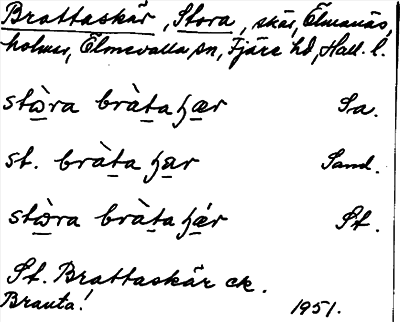 Brattaskär, Stora, skär, Älmanäs,
holmer, Ölmevalla sn, Fjäre hd, Hall. l.
stɷ̀ra bràtaꞕær Sa.
st. bràtaꞕar Sand.
stɷ̀ra bràtaꞕǽr St.
St. Brattaskär ek.
Brauta! 1951.